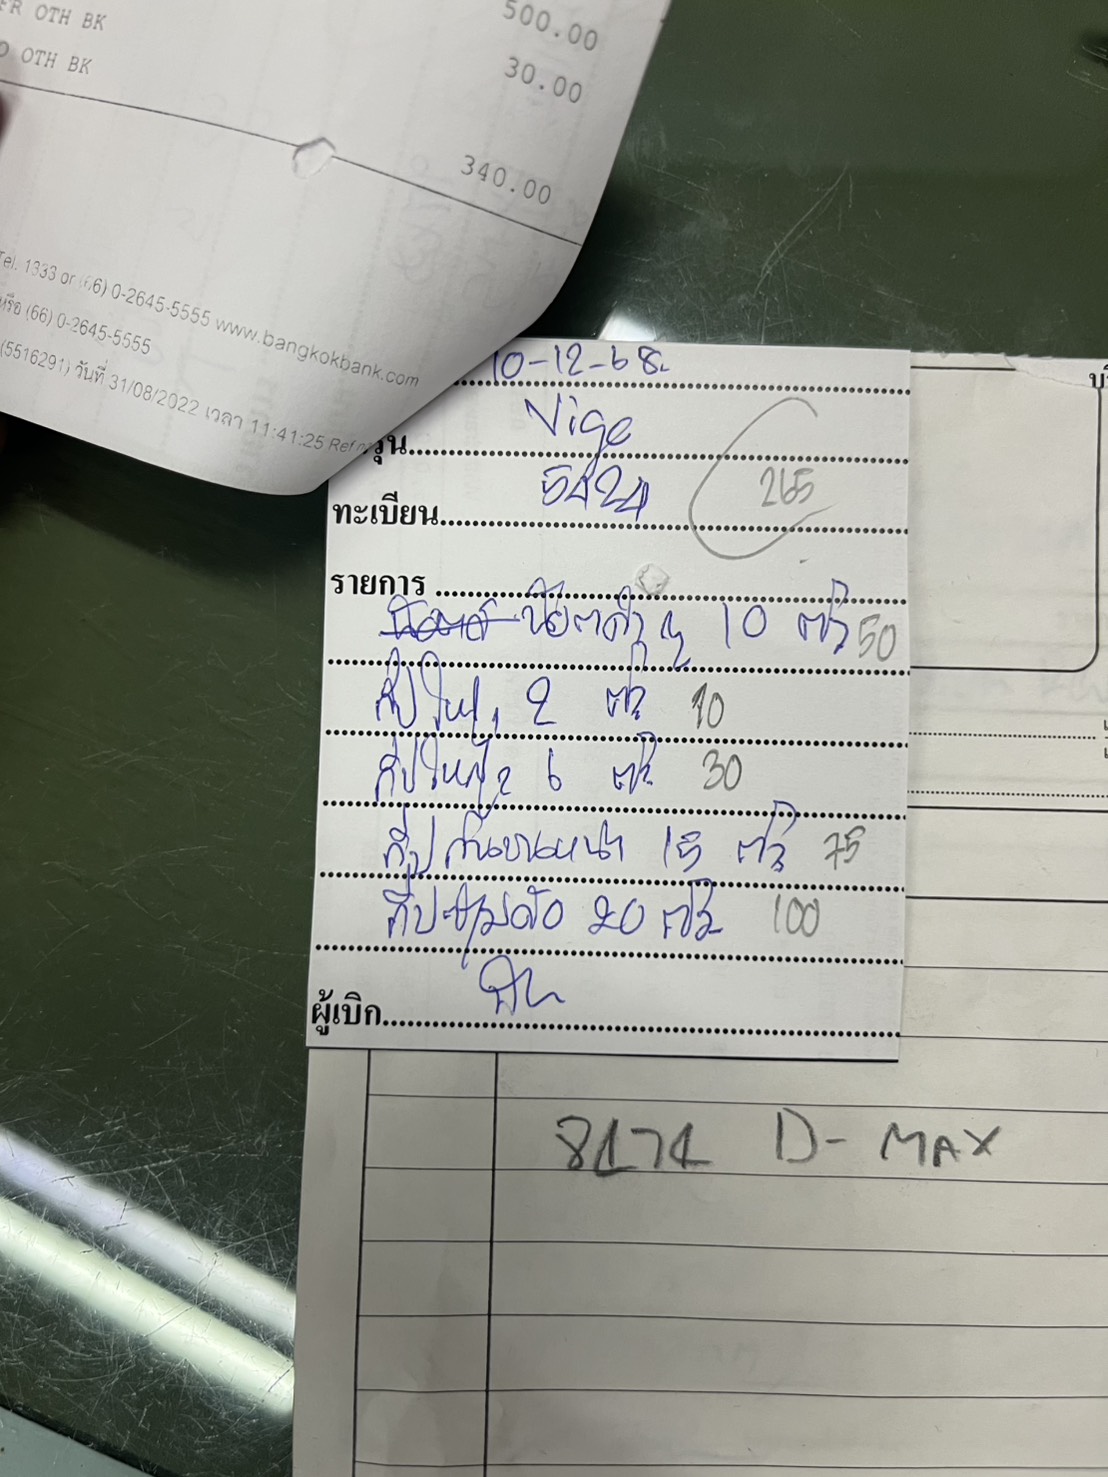 FR OTH BK 500.00
OTH BK 30.00
340.00
Tel. 1333 or (66) 0-2645-5555 www.bangkokbank.com
หรือ (66) 0-2645-5555
(5516291) วันที่ 31/08/2022 เวลา 11:41:25 Ref
10-12-68
รุ่น Vigo
ทะเบียน 5424 265
รายการ
10 ตัว 50
กิ๊ปใหญ่ 2 ตัว 10
กิ๊ปใหญ่ 6 ตัว 30
กิ๊ป 15 ตัว 75
กิ๊ป 20 ตัว 100
ผู้เบิก
D-MAX